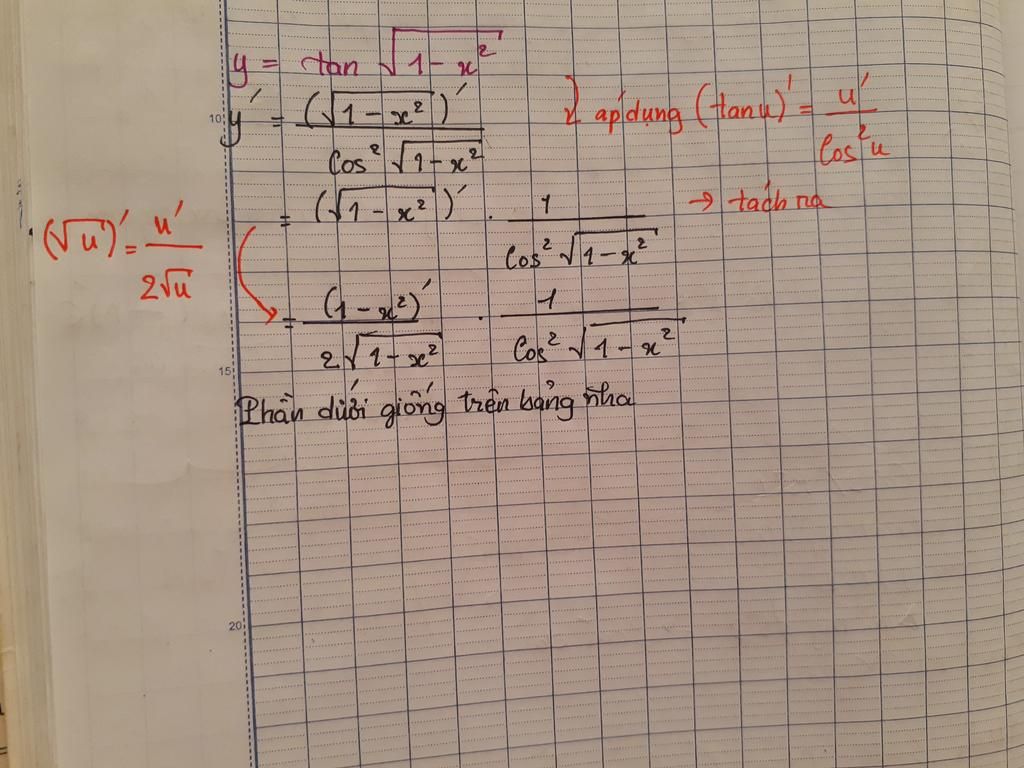 y = tan √(1-x²)
y' = (√(1-x²))' / cos² √(1-x²) } áp dụng (tan u)' = u' / cos²u
= (√(1-x²))' . 1 / cos² √(1-x²) → tách ra
(√u)' = u' / 2√u
= (1-x²)' / 2√(1-x²) . 1 / cos² √(1-x²)
Phần dưới giống trên bảng nha
10
15
20